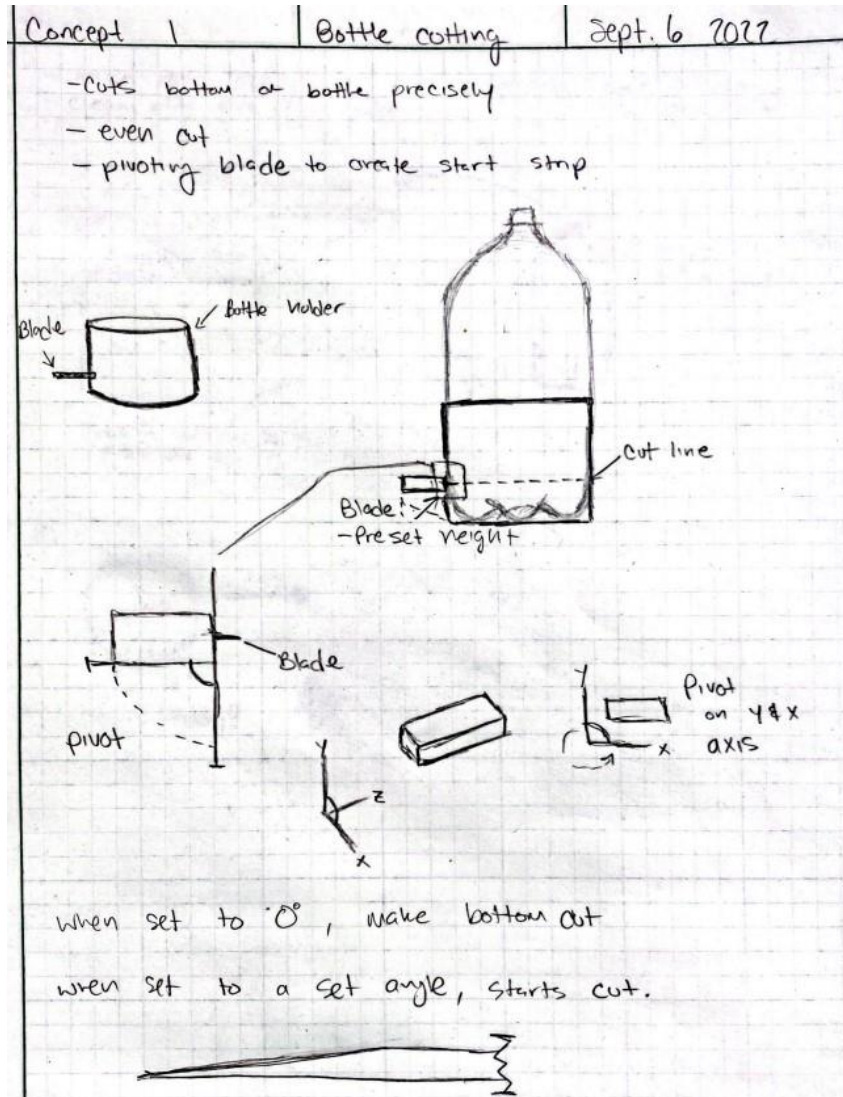 Concept 1
Bottle cutting
Sept. 6 2022
-Cuts bottom of bottle precisely
- even cut
- pivoting blade to create start strip
Bottle holder
Blade
Cut line
Blade:
-Preset height
Blade
Pivot
on y & x
axis
pivot
y
z
x
y
x
when set to 0°, make bottom cut
when set to a set angle, starts cut.